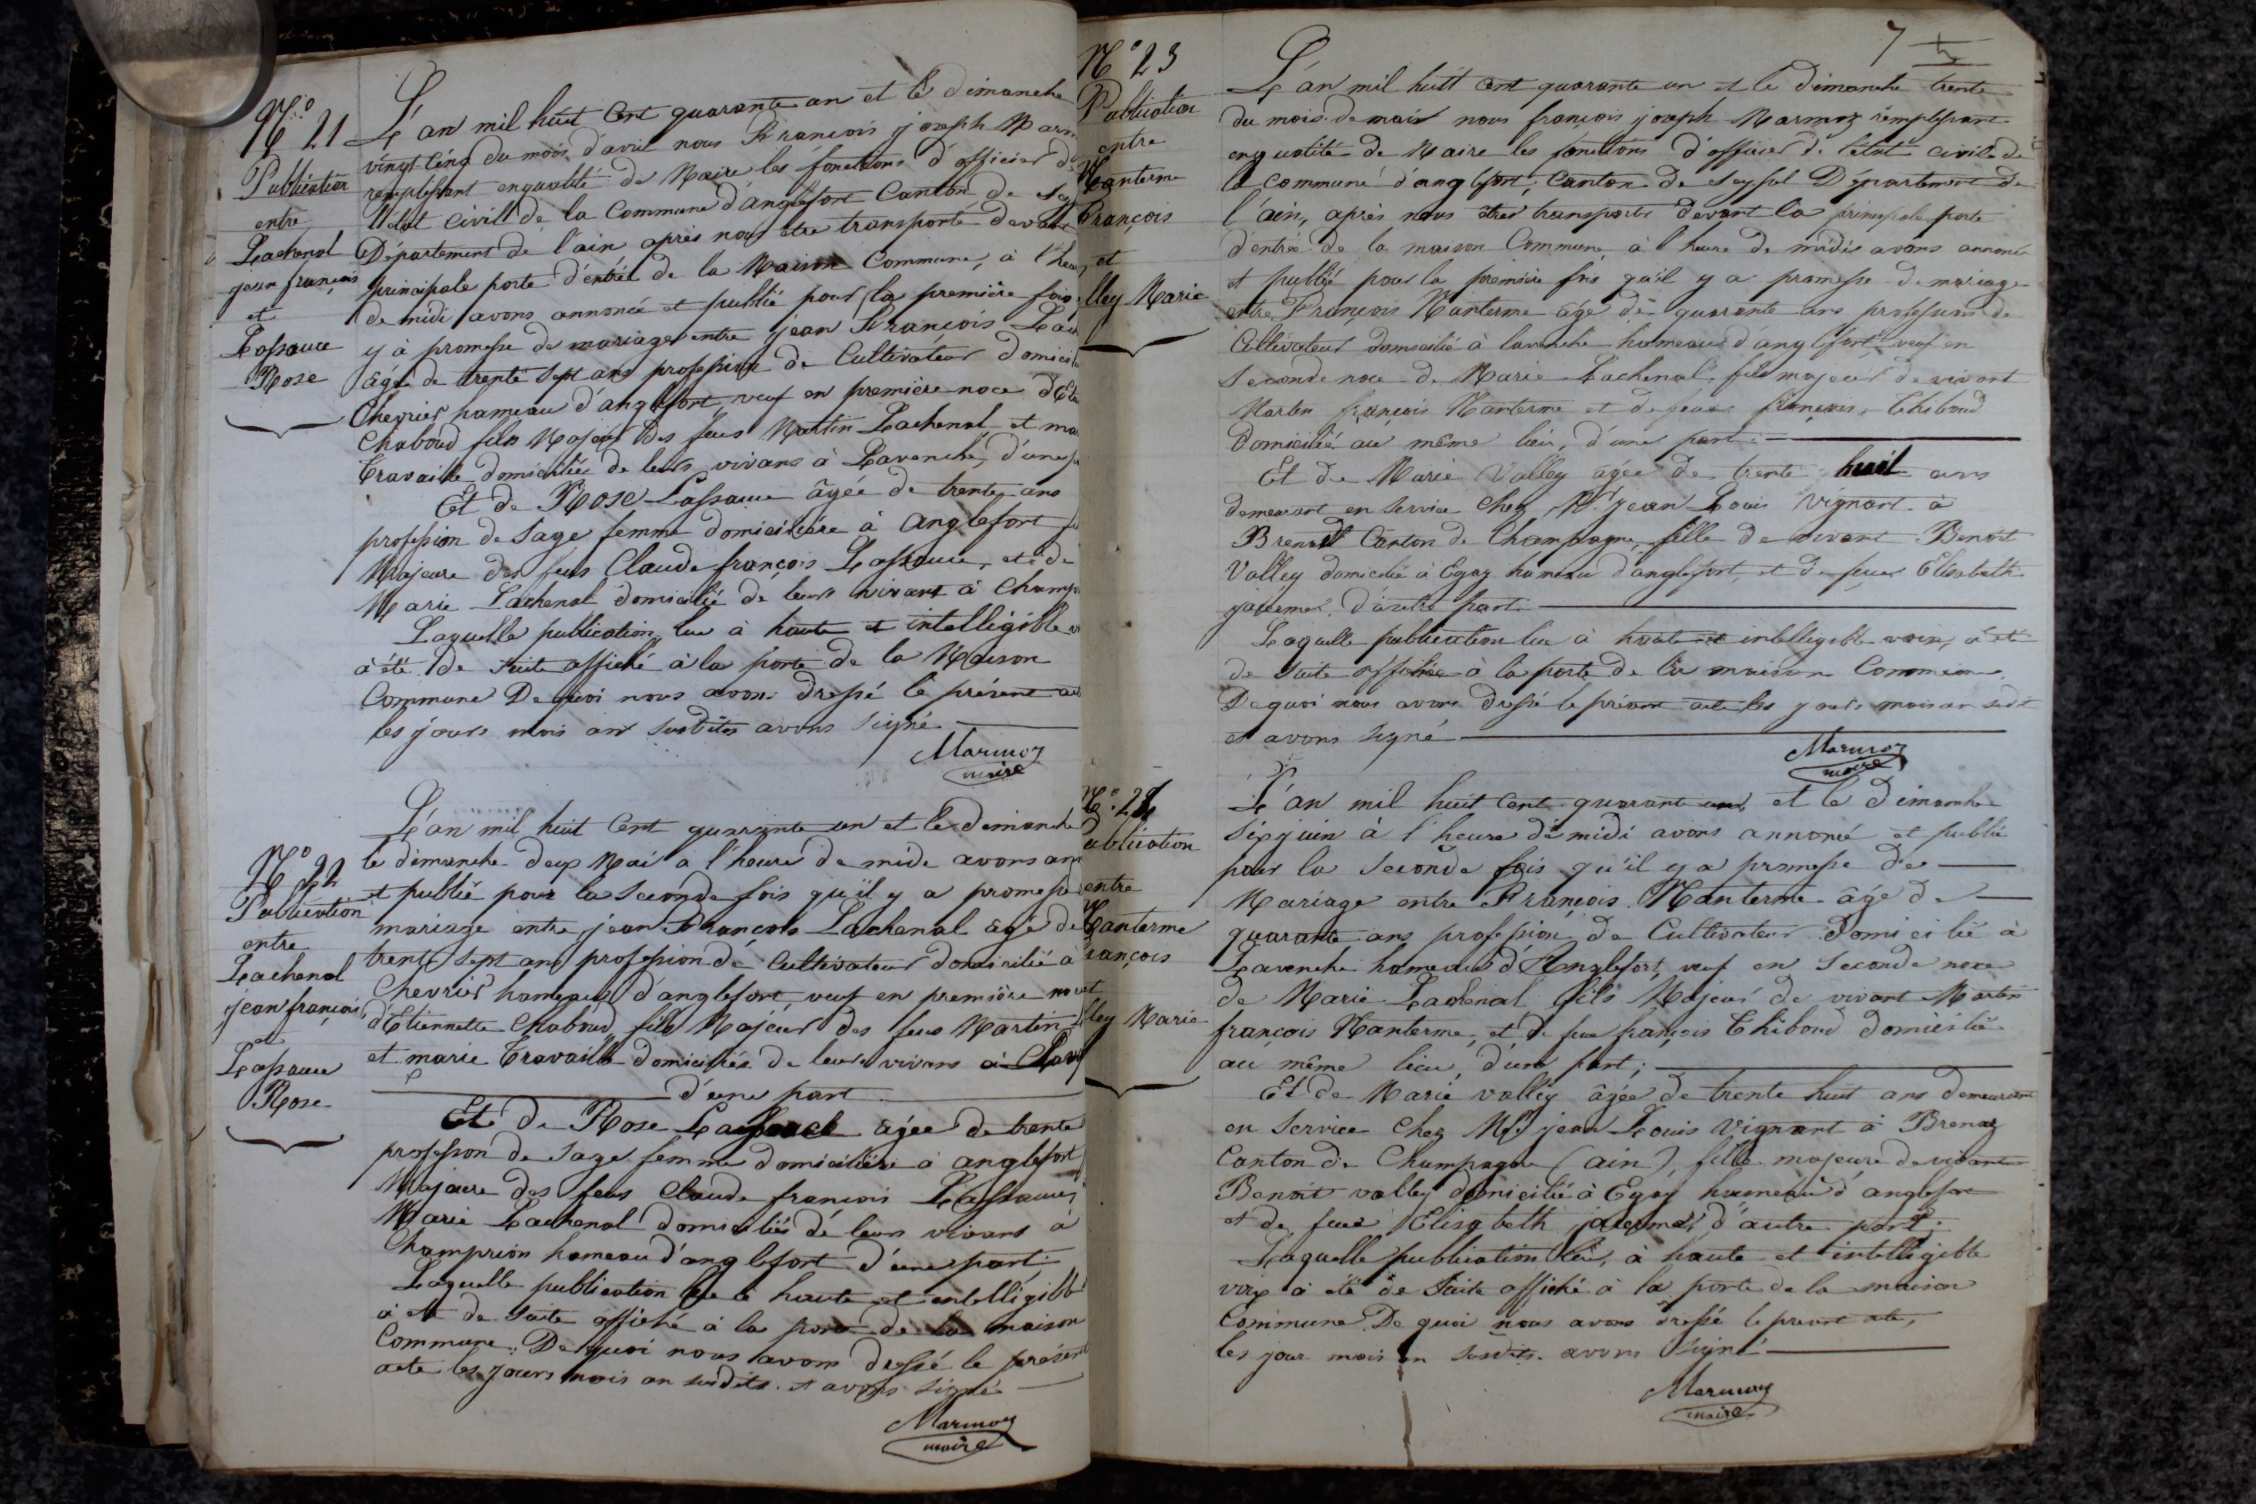 N.o 21
Publication
entre
Lachenal
jean françois
et
Lassauce
Rose
L'an mil huit Cent quarante un et le dimanche
vingt cinq du mois d'avril nous François joseph Marm
remplissant enqualité de Maire les fonctions d'officier de
l'état Civil de la Commune d'anglefort Canton de Sey
Département de l'ain après nous être transporté devant
principale porte d'entrée de la Maison Commune, à l'heure
de midi avons annoncé et publié pour la première fois
y à promesse de mariage entre jean François Lach
âgé de trente sept ans profession de Cultivateur domicilié
Chevrier hameau d'anglefort, veuf en première noce d'Etie
Chaboud fils Majeur des feus Martin Lachenal et mar
Travaille domiciliés de leurs vivans à Lavanche, d'une p
Et de Rose Lassauce âgée de trente ans
profession de Sage femme domiciliére à anglefort fi
Majeure des feus Claude françois Lassauce, et de
Marie Lachenal domicilié de leurs vivant à Champr
Laquelle publication, lue à haute et intelligible v
à été de suite affiché à la porte de la Maison
Commune De quoi nous avons dressé le présent act
les jours mois an susdites avons signé
Marmoz
maire
N.o 22
Publication
entre
Lachenal
jean françois
et
Lassauce
Rose
L'an mil huit Cent quarante un et le dimanche
le dimanche deux Mai a l'heure de midi avons ann
et publié pour la seconde fois qu'il y a promesse
mariage entre jean François Lachenal âgé de
trente sept ans profession de Cultivateur domicilié à
Chevrier hameau d'anglefort, veuf en première noce
d'Etiennette Chaboud, fils Majeur des feus Martin
et marie Travaille domiciliés de leurs vivans à Lava
d'une part
Et de Rose Lassauce âgée de trente
profession de Sage femme domiciliére à anglefort
Majeure des feus Claude françois Lassauce
Marie Lachenal domiciliés de leurs vivans à
Champrion hameau d'anglefort d'une part
Laquelle publication lue à haute et intelligible
à été de suite affiché à la porte de la maison
Commune. De quoi nous avons dressé le présent
acte les jours mois an susdits et avons signé
Marmoz
maire
7
N.o 23
Publication
entre
Nanterme
François
et
lley Marie
L'an mil huit Cent quarante un et le dimanche trente
du mois de mai nous françois joseph Marmoz remplissant
enqualité de Maire les fonctions d'officier de l'état civil de
la Commune d'anglefort, Canton de Seyssel Département de
l'ain, après nous être transporté devant la principale porte
d'entrée de la maison Commune, à l'heure de midi avons annoncé
et publié pour la première fois qu'il y a promesse de mariage
entre François Nanterme âgé de quarante ans profession de
Cultivateur domicilié à lavanche hameau d'anglefort veuf en
Seconde noce de Marie Lachenal, fils majeur de vivant
Martin françois Nanterme et de feue françoise Thiboud
domicilié au même lieu, d'une part.
Et de Marie Valley âgée de trente huit ans
demeurant en service chez Mr. jean Louis Vignant à
Brenaz Canton de Champagne, fille de vivant Benoit
Valley domicilié à Egaz hameau d'anglefort, et de feue Elisabeth
d'autre part.
Laquelle publication lue à haute et intelligible voix, à été
de suite affichée à la porte de la maison Commune.
De quoi nous avons dressé le présent acte les jours mois an susdit
et avons signé
Marmoz
maire
N.o 24
ublication
entre
Nanterme
rançois
et
lley Marie
L'an mil huit Cent quarante un et le dimanche
six juin à l'heure de midi avons annoncé et publié
pour la seconde fois qu'il y a promesse de
Mariage entre François Nanterme âgé de
quarante ans profession de Cultivateur Domicilié à
Lavanche hameau d'Anglefort, veuf en seconde noce
de Marie Lachenal fils Majeur de vivant Martin
françois Nanterme, et de feue françoise Thiboud domicilié
au même lieu, d'une part;
Et de Marie valley âgée de trente huit ans demeurant
en service Chez Mr. jean Louis Vignant à Brenaz
Canton de Champagne (ain), fille majeure de vivant
Benoit valley domicilié à Egaz hameau d'anglefort
et de feue Elisabeth d'autre part.
Laquelle publication lue, à haute et intelligible
voix à été de suite affiché à la porte de la maison
Commune. De quoi nous avons dressé le présent acte,
les jour mois an susdits avons signé
Marmoz
maire